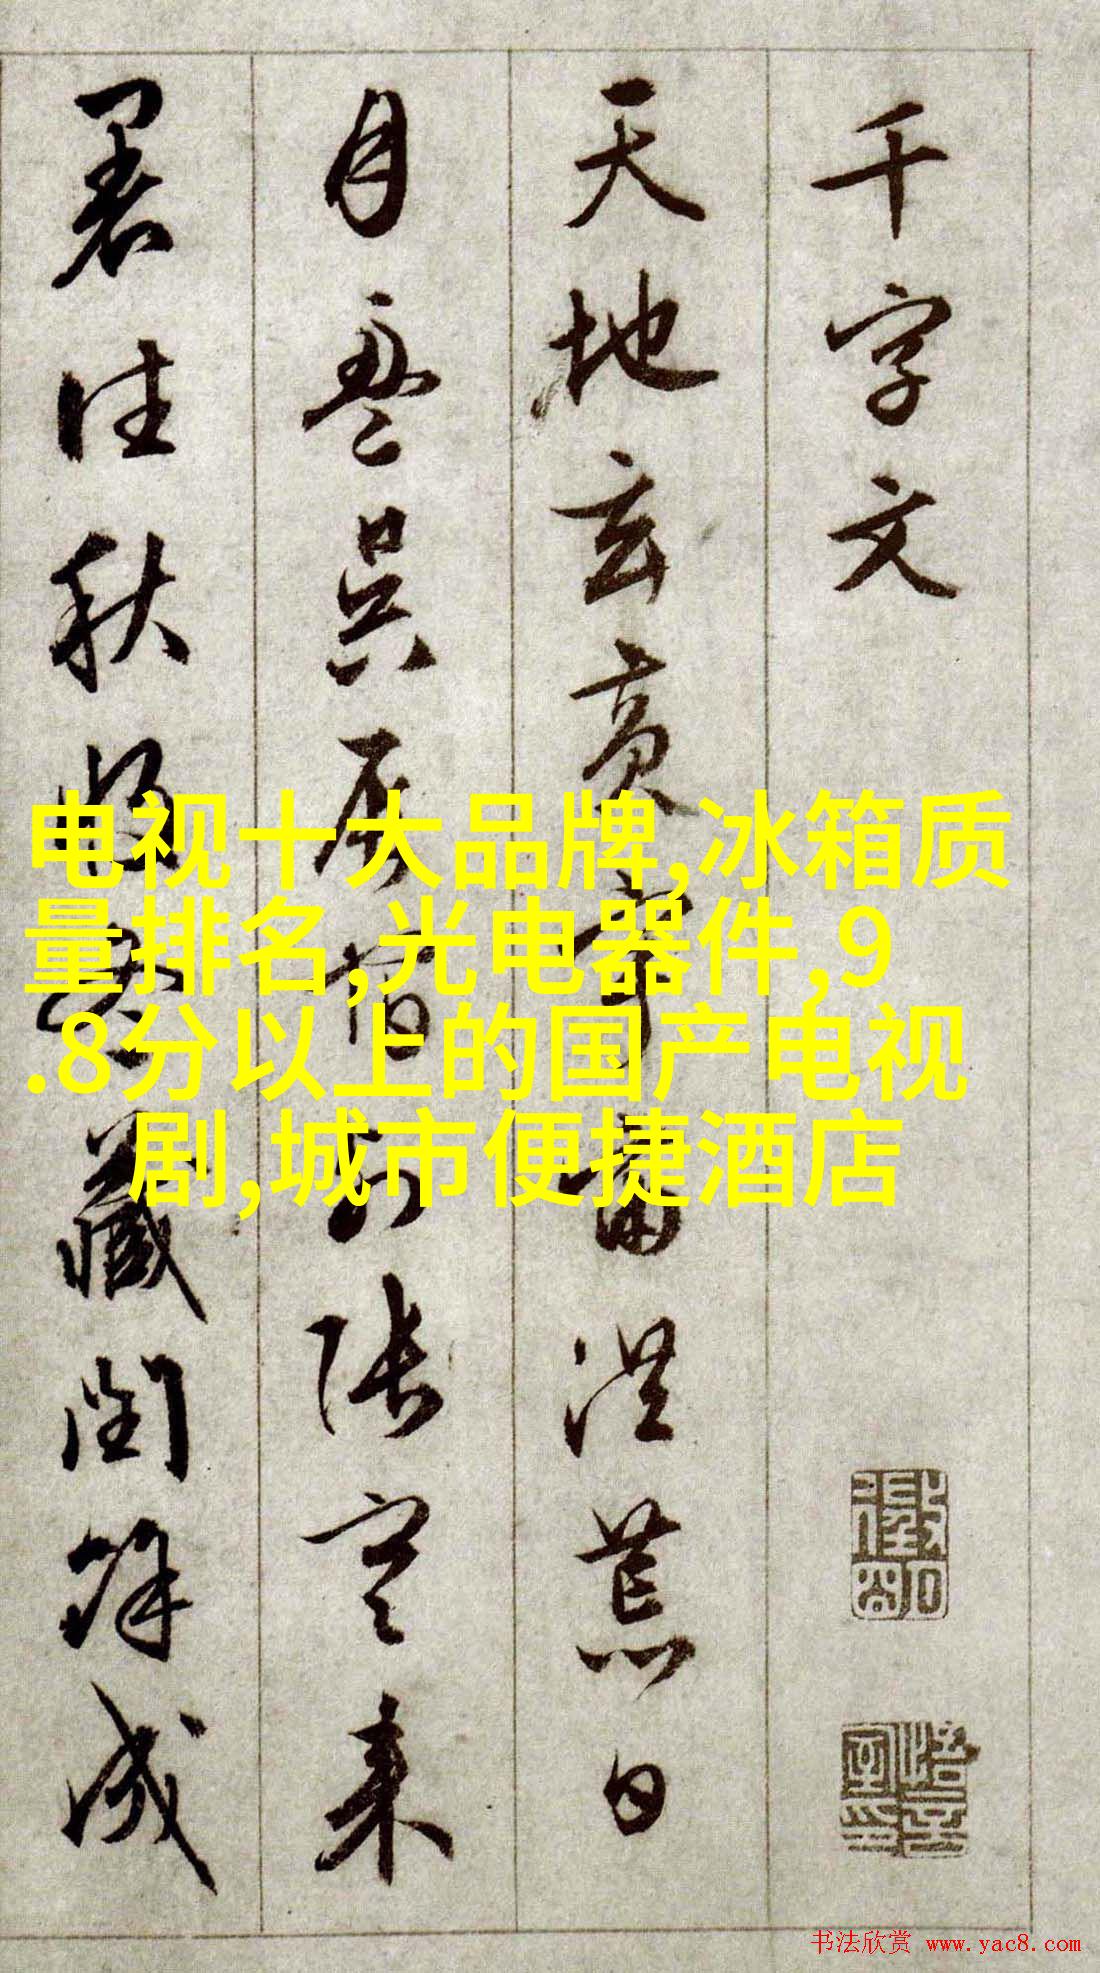 千字文
天地玄黄宇宙洪荒日
月盈昃辰宿列张寒来
暑往秋收冬藏闰余成
电视十大品牌,冰箱质
量排名,光电器件,9
.8分以上的国产电视
剧,城市便捷酒店
书法欣赏 www.yac8.com